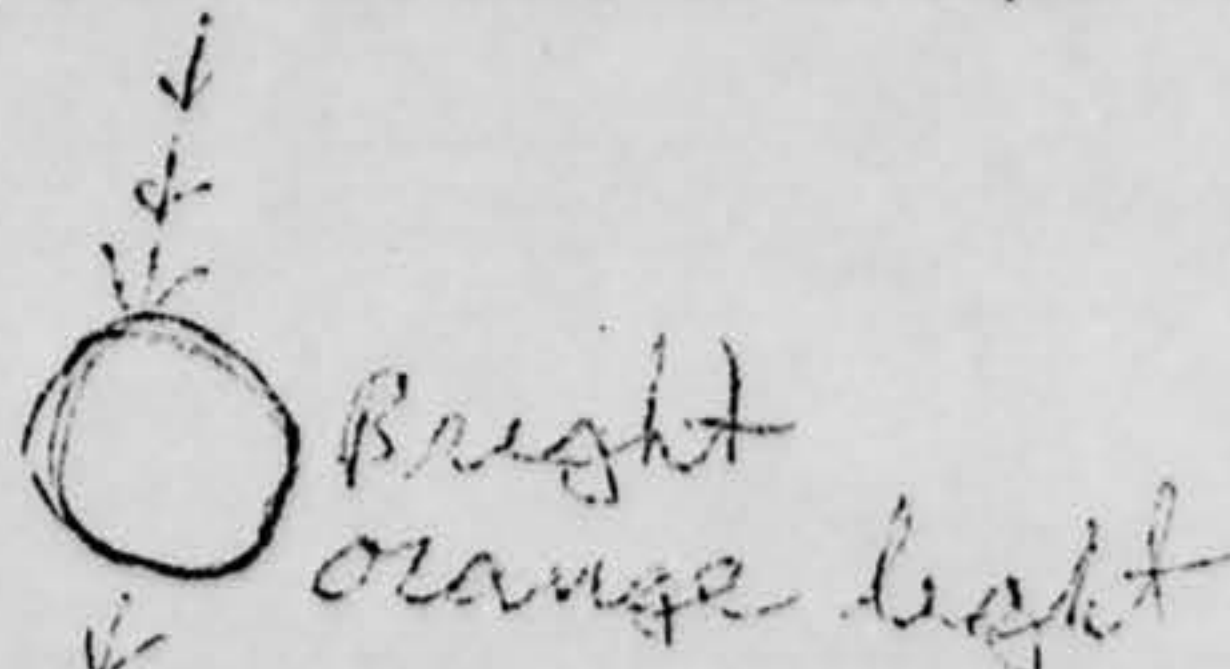 Bright
orange light